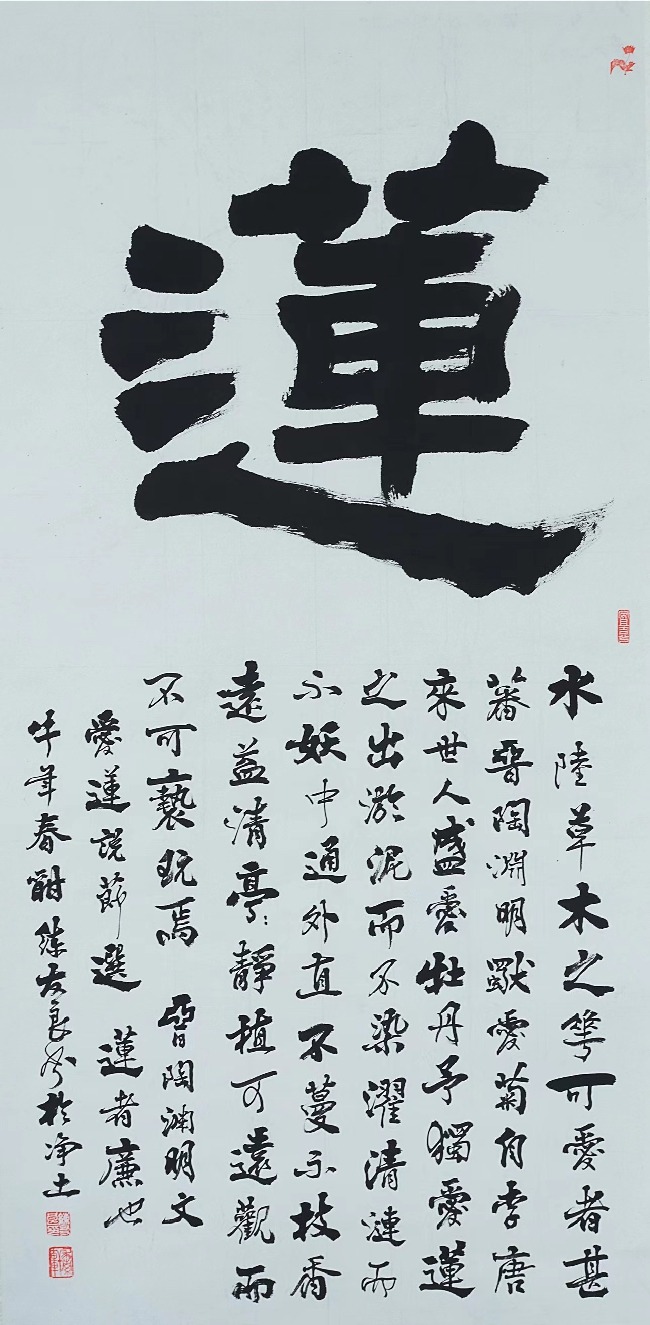 蓮
水陸草木之華可愛者甚
蕃晉陶淵明獨愛菊自李唐
來世人盛愛牡丹予獨愛蓮
之出淤泥而不染濯清漣而
不妖中通外直不蔓不枝香
遠益清亭〻靜植可遠觀而
不可褻玩焉 晉陶淵明文
愛蓮說節選 蓮者廉也
牛年春酣練友良書於净土